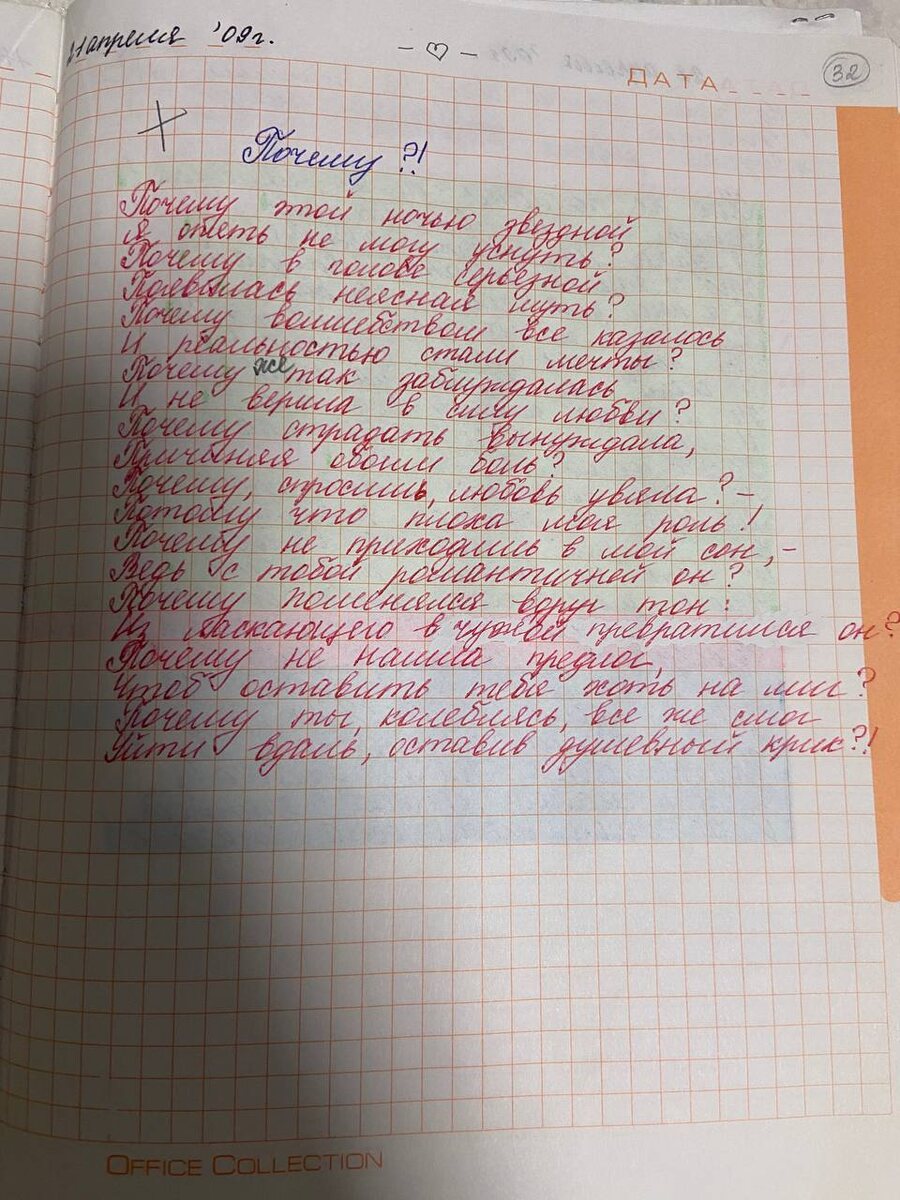 21 апреля '09г.
ДАТА
32
Почему ?!
Почему этой ночью звездной
Я опять не могу уснуть?
Почему в голове серьезной
Появилась неясная муть?
Почему волшебством все казалось
И реальностью стали мечты?
Почему же так заблуждалась
И не верила в силу любви?
Почему страдать вынуждала,
Причиняя обоим боль?
Почему, спросишь, любовь увяла? –
Потому что плоха моя роль!
Почему не приходишь в мой сон, –
Ведь с тобой романтичней он?
Почему поменялся вдруг тон:
Из ласкающего в чужой превратился он?
Почему не нашла предлог,
Чтоб оставить тебя хоть на миг?
Почему ты, колеблясь, все же смог
Уйти вдаль, оставив душевный крик?!
OFFICE COLLECTION